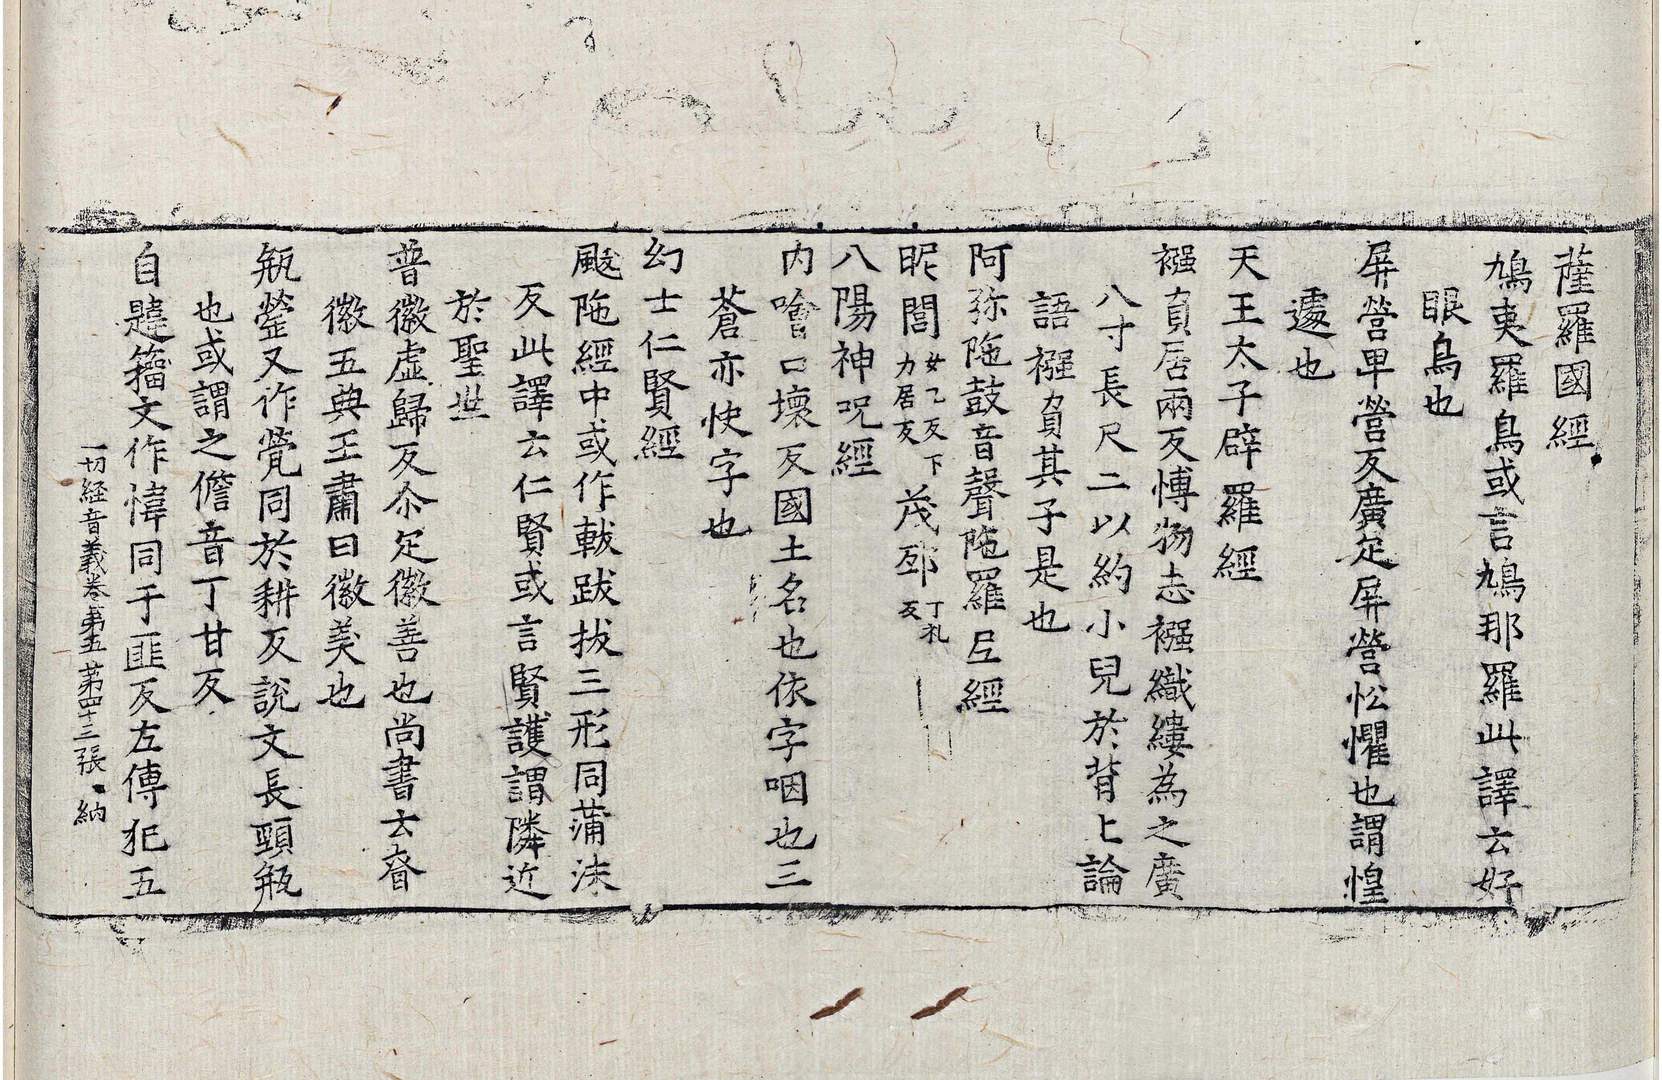 薩羅國經
鳩夷羅鳥或言鳩那羅此譯云好
眼鳥也
屏營卑營反廣疋屏營忪懼也謂惶
遽也
天王太子辟羅經
襁負居兩反博物志襁織縷為之廣
八寸長尺二以約小兒於背上論
語襁負其子是也
阿弥陁鼓音聲陁羅尼經
昵閭女乙反下力居反茂邳丁礼反
八陽神呪經
內噲口壞反國土名也依字咽也三
蒼亦快字也
幻士仁賢經
颰陁經中或作軷跋拔三形同蒲沫
反此譯云仁賢或言賢護謂隣近
於聖世
普徽虛歸反尒疋徽善也尚書云眘
徽五典王肅曰徽美也
瓶罃又作甇同於耕反說文長頸瓶
也或謂之儋音丁甘反
自韙籀文作愇同于匪反左傳犯五
一切経音義卷第五 第四十三張 納